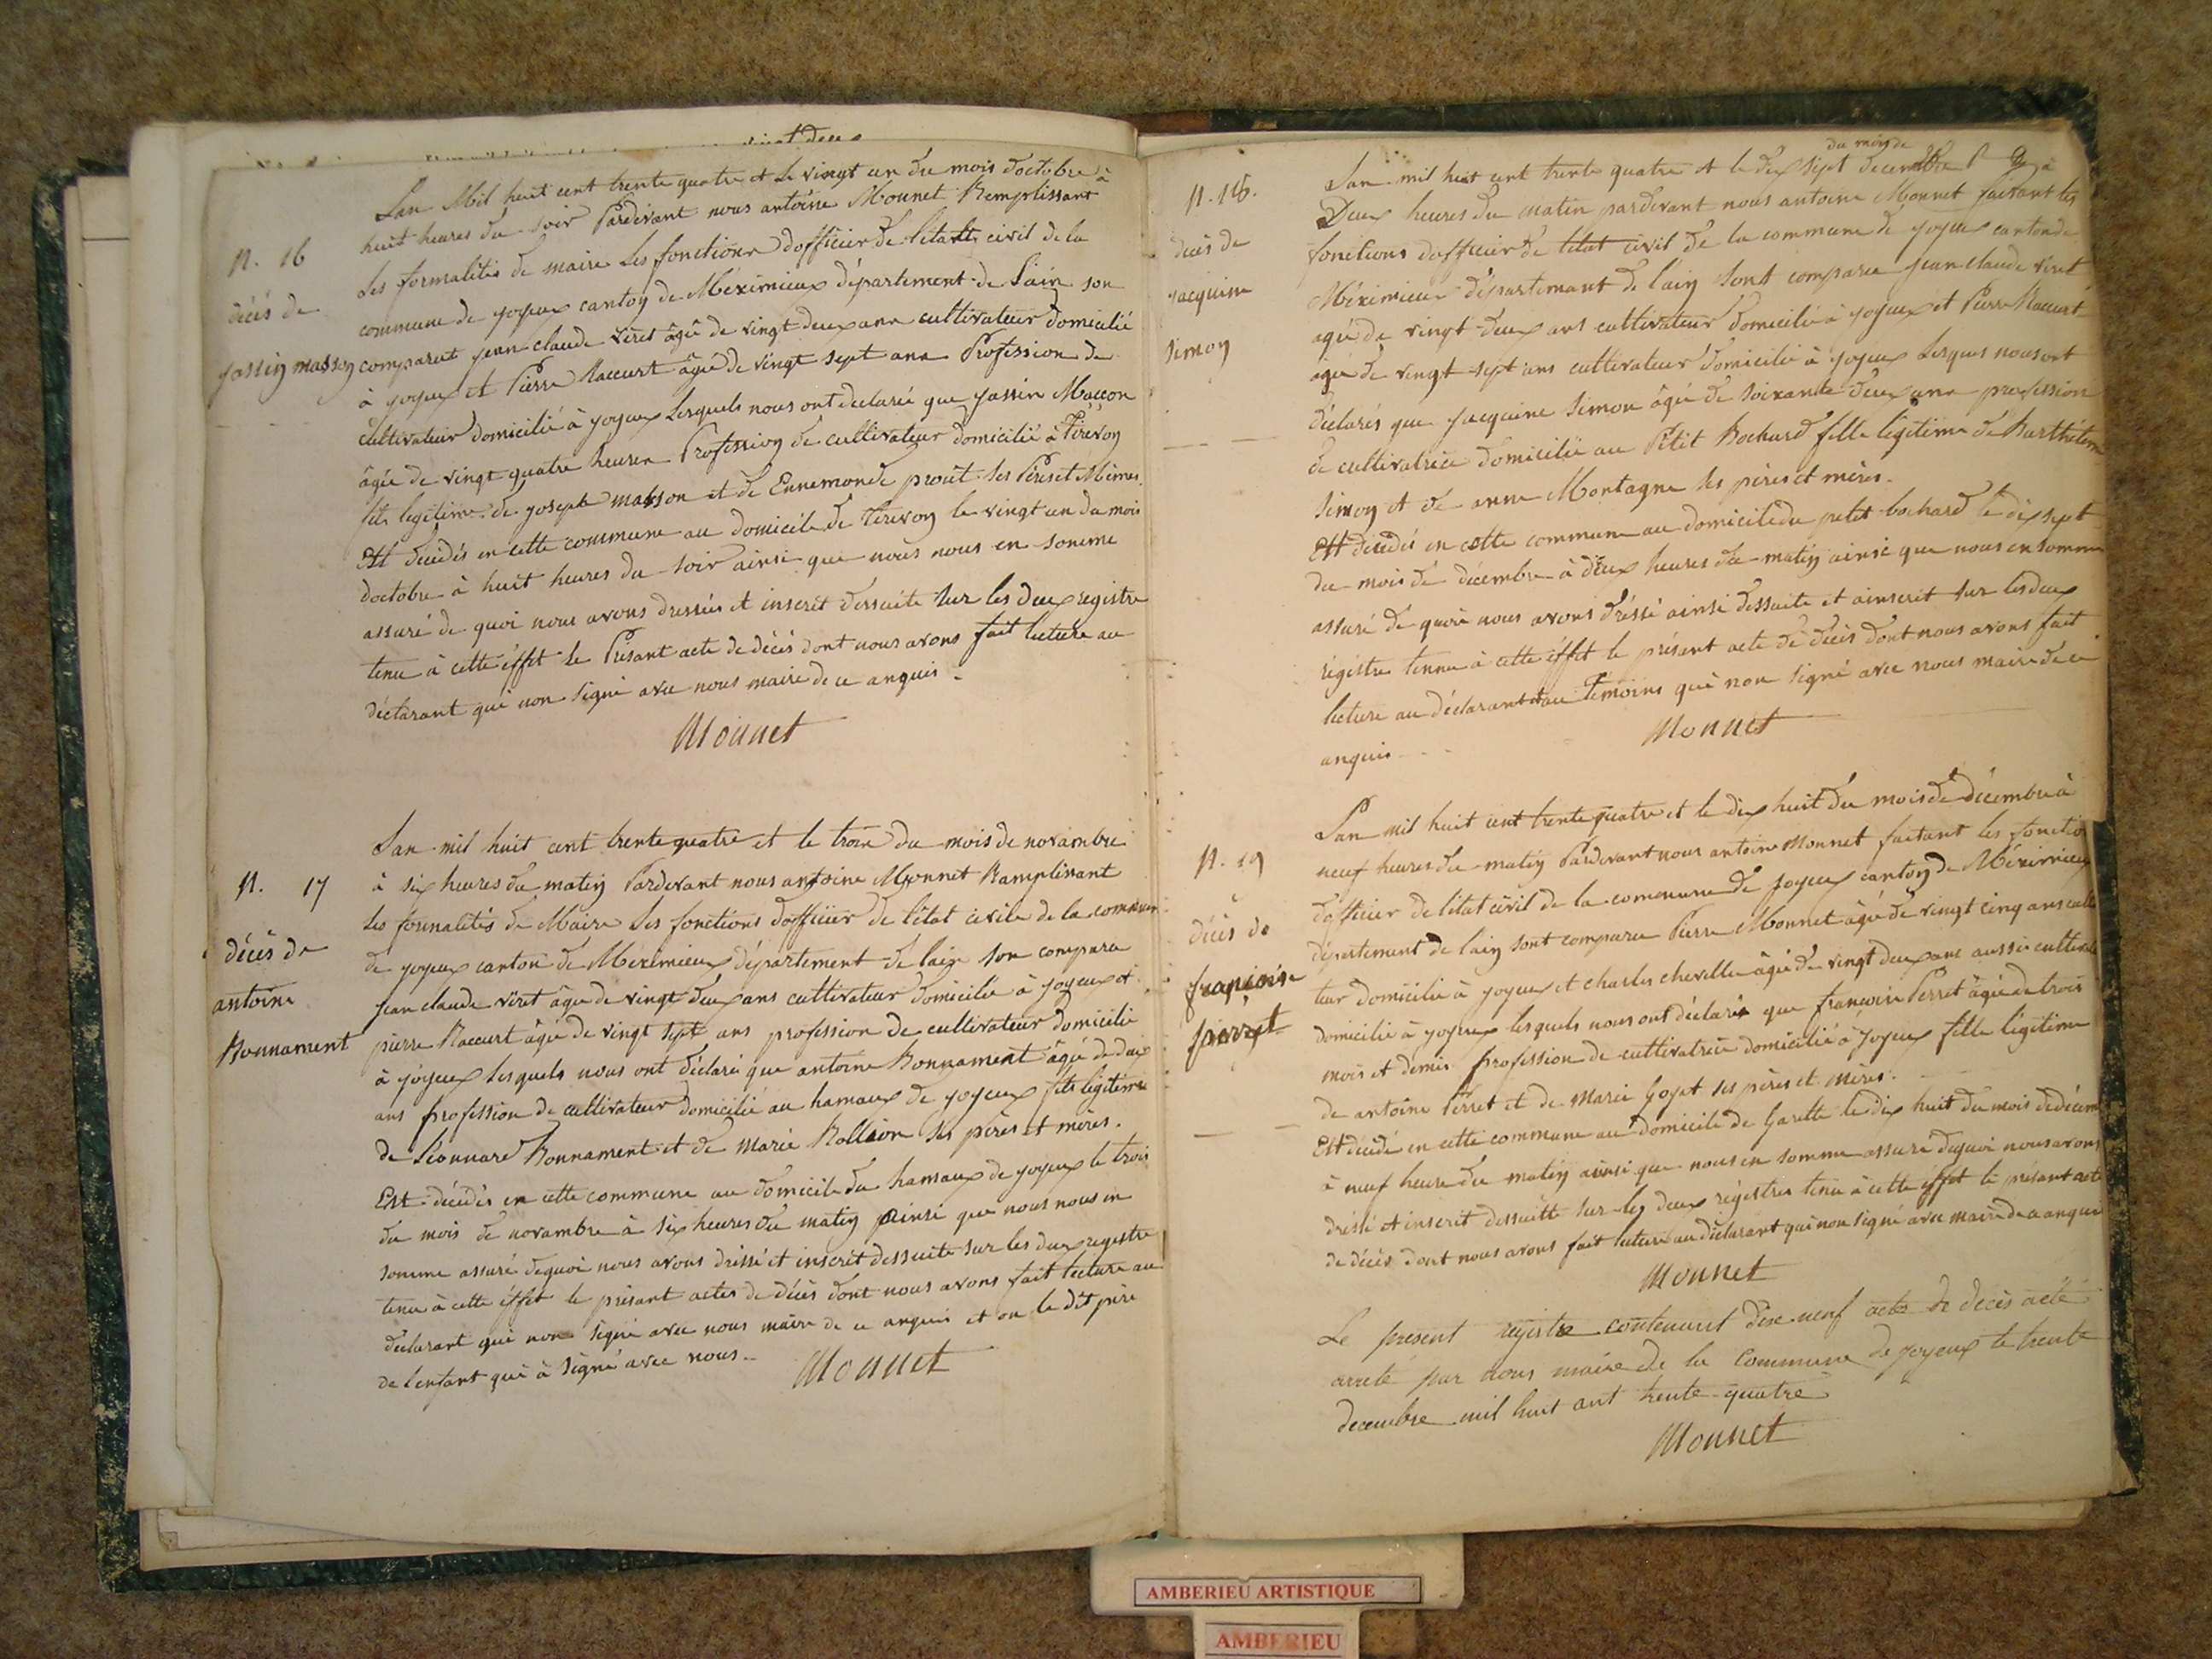 vingt deu
Lan Mil huit cent trente quatre et Le vingt un du mois doctobre à
N. 16
huit heures du soir Pardevant nous antoine Monnet Remplissant
Les formalités de maire Les fonctions dofficier de létatt civil de la
décès de
commune de joyeux canton de Méximieux département de Lain son
jassin masson
comparut jean claude véret âgé de vingt deux ans cultivateur domicilié
à joyeux et Pierre Raccurt âgé de vingt sept ans Profession de
cultivateur domicilié à joyeux Lesquels nous ont declaré que jassin Maccon
âgée de vingt quatre heures Profession de cultivateur domicilié à Tirevoy
fils legitime de joseph masson et de Ennemonde prost ses Péres et Mémes.
Est décédés en cette commune au domicile de Tirevoy le vingt un du mois
doctobre à huit heures du soir ainsi que nous nous en somme
assuré de quoi nous avons dressés et inscrit dessuite sur les deux registre
tenu à cette éffet le Présant acte de décés dont nous avons fait lecture au
déclarant qui non signé avec nous maire de ce anquis.
Monnet
Lan mil huit cent trente quatre et le trois du mois de novambre
N. 17
à six heures du matin Pardevant nous antoine Monnet Ramplissant
les formalités de Maire Les fonctions dofficier de létat civile de la commune
décès de
de joyeux canton de Méximieux département de lain son compara
antoine
jean claude véret âgé de vingt deux ans cultivateur domicilié à joyeux et
Bonnament
pierre Raccurt âgé de vingt sept ans profession de cultivateur domicilié
à joyeux lesquels nous ont déclaré que antoine Bonnament âgé de deix
ans profession de cultivateur domicilié au hamaux de joyeux fils légitime
de Léonnard Bonnament et de Marie Rollion ses pères et mères.
Est décédés en cette commune au domicile du hamaux de joyeux le trois
du mois de novambre à six heures du matin ainsi que nous nous en
somme assuré dequoi nous avons dréssé et inscrit dessuite sur les deux registre
tenu à cette éffet le présant actes de décés dont nous avons fait lecture au
déclarant qui non signé avec nous maire de ce anquis et ou le dit père
de lenfant qui à signé avec nous.
Monnet
du mois de
Lan mil huit cent trente quatre et le dix sept decembre à
N. 18.
Deux heures du matin pardevant nous antoine Monnet faisant les
décès de
fonctions dofficier de létat civil de la commune de joyeux canton de
jacquime
Méximieux département de lain sont comparu jean claude véret
simon
agé de vingt deux ans cultivateur domicilié à joyeux et Pierre Raccurt
agé de vingt sept ans cultivateur domicilié à joyeux Lesques nous ont
déclarés que jacquime simon âgé de soixante deux ans profession
de cultivatrice domicilié au Petit Bochard fille légitime de Barthélem
Simon et de anne Montagne ses pères et mères.
Est décédés en cette commune au domicile du petit bochard le dix sept
du mois de décembre à deux heures du matin ainsi que nous en somme
assuré de quoi nous avons dréssé ainsi dessuite et ainscrit sur les deux
régistre tenue à cette éffet le présant acte de décés dont nous avons fait
lecture au déclarant et au Témoins qui non signé avec nous maire de ce
anquis
Monnet
Lan mil huit cent trente quatre et le dix huit du mois de décembre à
N. 19
neuf heures du matin Pardevant nous antoine Monnet faitant les fonctio
dofficier de létat civil de la commune de joyeux canton de Méximieux
décés de
département de lain sont comparu Pierre Monnet âgé de vingt cinq ans cult
françoise
teur domicilié à joyeux et charles cheville âgé de vingt deux ans aussi cultiva
pierret
domicilié à joyeux lesquels nous ont déclaré que françoise Perret âgée de trois
mois et demis profession de cultivatrice domicilié à Joyeux fille légitime
de antoine Perret et de Marie Goyet ses pères et mères.
Est décédé en cette commune au domicile de Garette le dix huit du mois de décem
à neuf heure du matin ainsi que nous en somme assuré dequoi nous avons
dréssé et inscrit dessuitte sur les deux régistres tenu à cette éffet le présant acte
de décés dont nous avons fait lecture au déclarant qui non signé avec maire de ce anquis
Monnet
Le present registre contenant dixe neuf acts de decès acté
arreté par nous maire de la Commune de joyeux le trente
decembre mil huit cent trente quatre
Monnet
AMBERIEU ARTISTIQUE
AMBERIEU